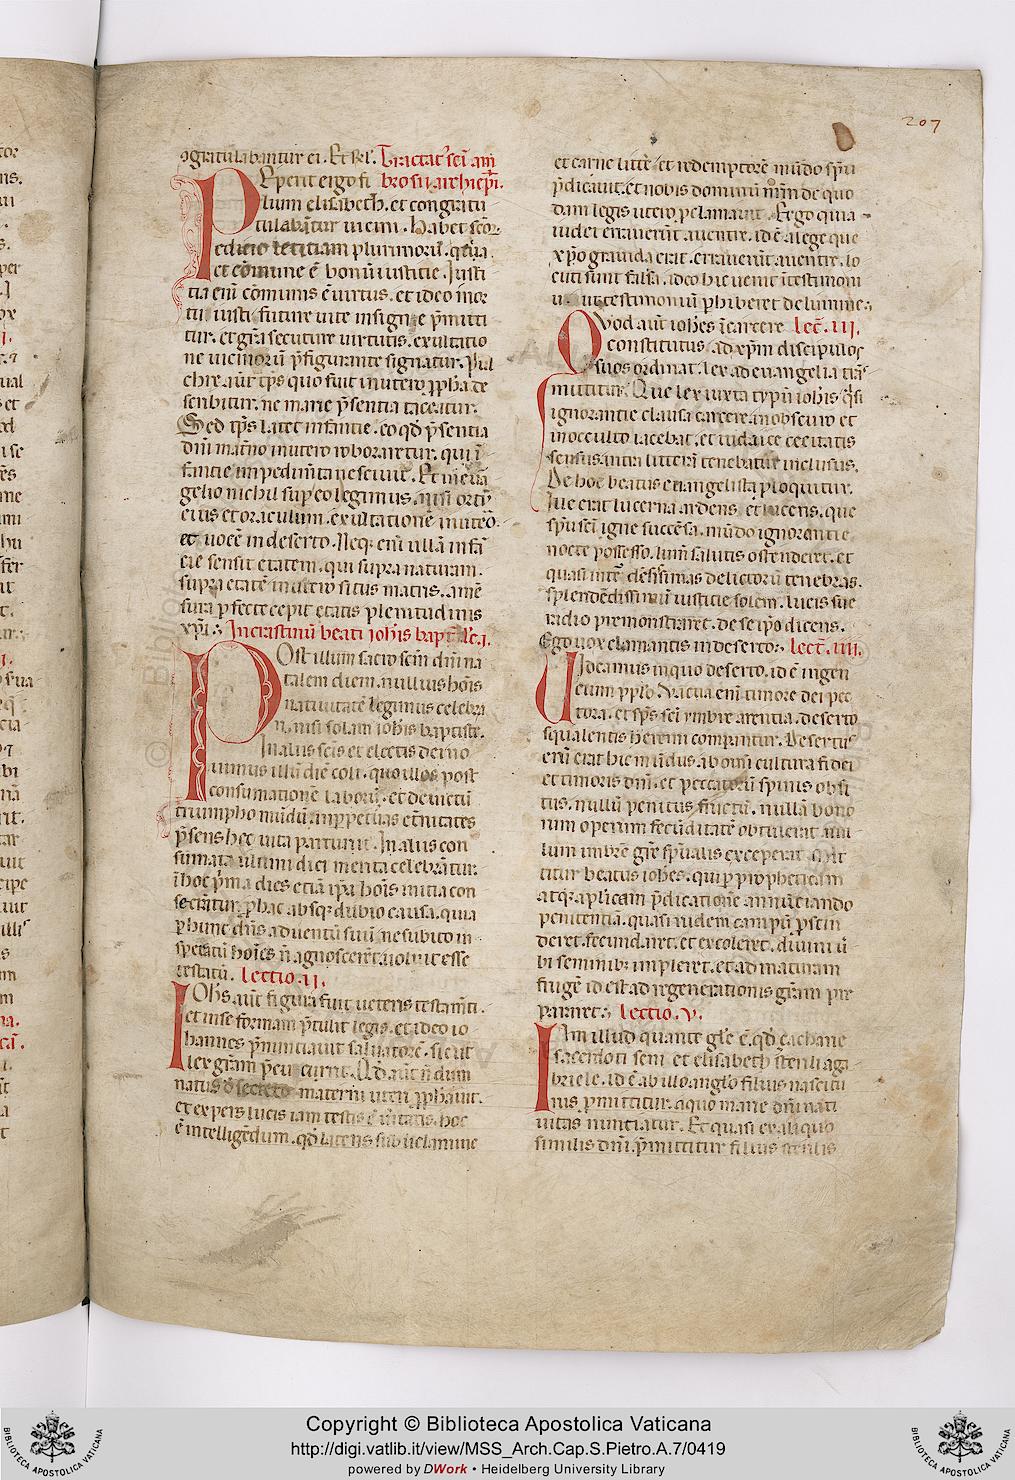 207
ogratulabantur ei. Et rel'. Tractat' sc̄i am
Eperit ergo fi brosii archiep̄i.
lium elisabeth. et congratu
tulabantur uicini. Habet sc̄or
editio letitiam plurimorū. quia
et cōmune ē bonū iusticie. Justi
tia enī cōmunis ē uirtus. et ideo inor
tu iusti future uite insigne p̄mitti
tur. et grā secuture uirtutis. exultatio
ne uicinorū p̄figurante signatur. Pul
chre aūt tp̄s quo fuit in utero ꝓpha de
scribitur. ne marie p̄sentia taceatur.
Sed tp̄s latet infantie. eo qd̄ p̄sentia
dn̄i matr̄no in utero roboraretur. qui ī
fantie impedim̄ta nesciuit. Et in euā
gelio nichil sup̄ eo legimus. nisi ortū
eius et oraculum. exultationē in utēo.
et uocē in deserto. Neq; enī ullā infā
cie sensit etatem. qui supra naturam.
supra etatē in utero situs matris. a mē
sura p̄fecte cepit etatis plenitudinis
xp̄i. In crastinū beati ioh̄is bapt̄. Lc̄. i.
Ost illum sacro sc̄m dn̄i na
talem diem. nullius hoīs
natiuitatē legimus celebra
ri. nisi solam ioh̄is baptiste.
In aliis sc̄is et electis dei no
uimus illū diē coli. quo illos post
consumationē laborū. et deuictū
triumpho mūdū. in ꝑpetuas et̄nitates
p̄sens hec uita parturit. In aliis con
sumata ultimi diei merita celebrātur.
ī hoc p̄ma dies etiā ip̄a hoīs initia con
secrātur. ꝑ hac absq; dubio causa. quia
ꝑ hunc dn̄s aduentū suū ne subito in
speratū hoīes n̄ agnoscerēt. uoluit esse
testatū. Lectio. ii.
Ohs aūt figura fuit ueteris testam̄ti.
et in se formam p̄tulit legis. et ideo io
hannes p̄nuntiauit saluatorē. sicut
lex grām p̄cucurrit. Qd̄ aūt n̄dum
natus de secreto materni uteri ꝓphauit.
et expers lucis iam testis ē ueritatis. hoc
ē intelligēdum. qd̄ latens sub uelamine
et carne littere et redemptorē mūdo sp̄u
p̄dicauit. et nobis dominū nr̄m de quo
dam legis utero ꝓclamauit. Ergo quia
iudei errauerūt a uentre. id ē a lege que
xp̄o grauida erat. errauerūt a uentre. lo
cuti sunt falsa. ideo hic uenit ī testimoni
u. ut testimoniū ꝑhiberet de lumine.
Quod aūt ioh̄es ī carcere Lec̄. iii.
constitutus. ad xp̄m discipulos
suos ordinat. lex ad euangelia trās
mittitur. Que lex iuxta typū ioh̄is qͣsi
ignorantie clausa carcere. in obscuro et
in occulto iacebat. et iudaice cecitatis
sensus. intra litterā tenebatur inclusus.
De hoc beatus euangelista ꝓloquitur.
Jlle erat lucerna ardens. et lucens. que
sp̄u sc̄i igne succēsa. mūdo ignorantie
nocte possesso. lum̄ salutis ostenderet. et
quasi int̄ dēsissimas delictorū tenebras.
splendēdissimū iusticie solem. lucis sue
radio p̄remonstraret. de se ip̄o dicens.
Ego uox clamantis in deserto. Lect̄. iiii.
Uideamus in quo deserto. id ē in gen
cium ꝓplo. Vacua enī timore dei pec
tora. et sp̄s sc̄i ymbre arentia. deserto
squalentis heremi comparatur. Desertus
enī erat hic mūdus. ab omī cultura fidei
et timoris dn̄i. et peccatorū spinis obsi
tus. nullū penitus fructū. nullā bono
rum operum fecūditatē obtulerat. nul
lum imbrē grē sp̄ualis exceperat. Mit
titur beatus ioh̄es. qui ꝑ propheticam
atq; aplicam p̄dicationē annūciando
penitentiā. quasi rudem campū ꝓscin
deret. fecundaret. et excoleret. diuini ū
bi seminibz impleret. et ad maturam
frugē id est ad regenerationis grām pre
pararet. Lectio. v.
Jam illud quante glē ē. qd̄ zacharie
sacerdoti seni et elisabeth sterili a ga
briele. id ē ab illo anglo filius nascitu
rus p̄mittitur. a quo marie dn̄i nati
uitas nuntiatur. Et quasi ex aliquo
similis dn̄i. p̄mittitur filius sterilis
Copyright © Biblioteca Apostolica Vaticana
http://digi.vatlib.it/view/MSS_Arch.Cap.S.Pietro.A.7/0419
powered by DWork • Heidelberg University Library